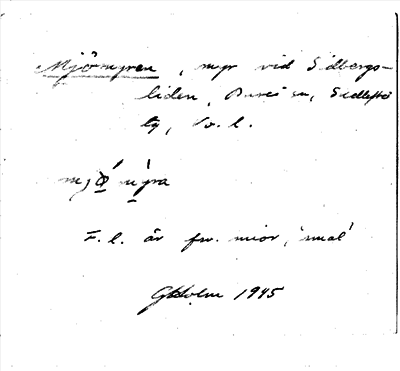 Mjömyren, myr vid Sidbergs-
liden, Bureå sn, Skellefteå
tg, Vb. l.
F. l. är fv. mior, 'smal'
GHolm 1945